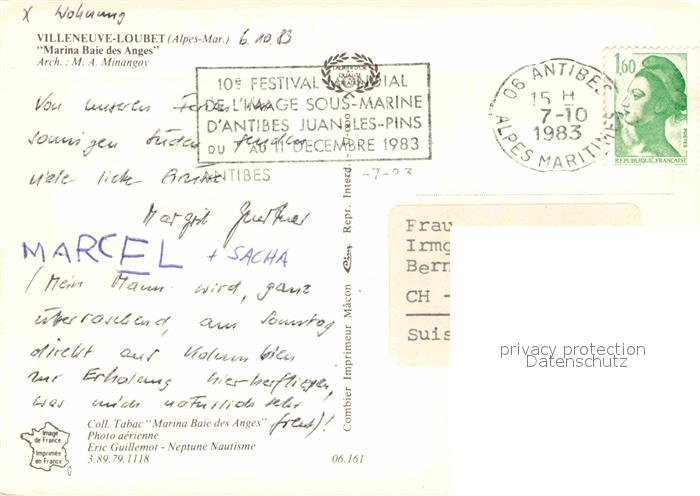 x Wohnung
VILLENEUVE-LOUBET (Alpes-Mar.) 6.10.83
"Marina Baie des Anges"
Arch. : M. A. Minangoy
10e FESTIVAL MONDIAL
DE L'IMAGE SOUS-MARINE
D'ANTIBES JUAN-LES-PINS
DU 7 AU 11 DECEMBRE 1983
ANTIBES
-7-83
06 ANTIBES
15 H
7-10
1983
ALPES MARITIMES
1,60
POSTES
REPUBLIQUE FRANÇAISE
Von unseren Ferien im
sonnigen Süden senden
viele liebe Grüsse
Margrit
MARCEL + SACHA
(Mein Mann wird, ganz
überraschend, am Sonntag
direkt aus Kolumbien
zur Erholung hierherfliegen,
was mich natürlich sehr
freut)!
Combier Imprimeur Mâcon Cim Repr. Interd.
Frau
Irmg
Bern
CH -
Suis
privacy protection
Datenschutz
Coll. Tabac "Marina Baie des Anges"
Photo aérienne
Eric Guillemot - Neptune Nautisme
3.89.79.1118
06.161
Image
de France
Imprimée
en France